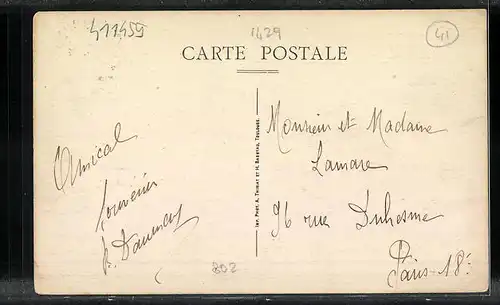 411459
1429
41
CARTE POSTALE
Amical
souvenir
Monsieur et Madame
Lamare
96 rue Duhesme
Paris-18e
Imp. Phot. A. Thiriat et H. Basuyau, Toulouse.
802